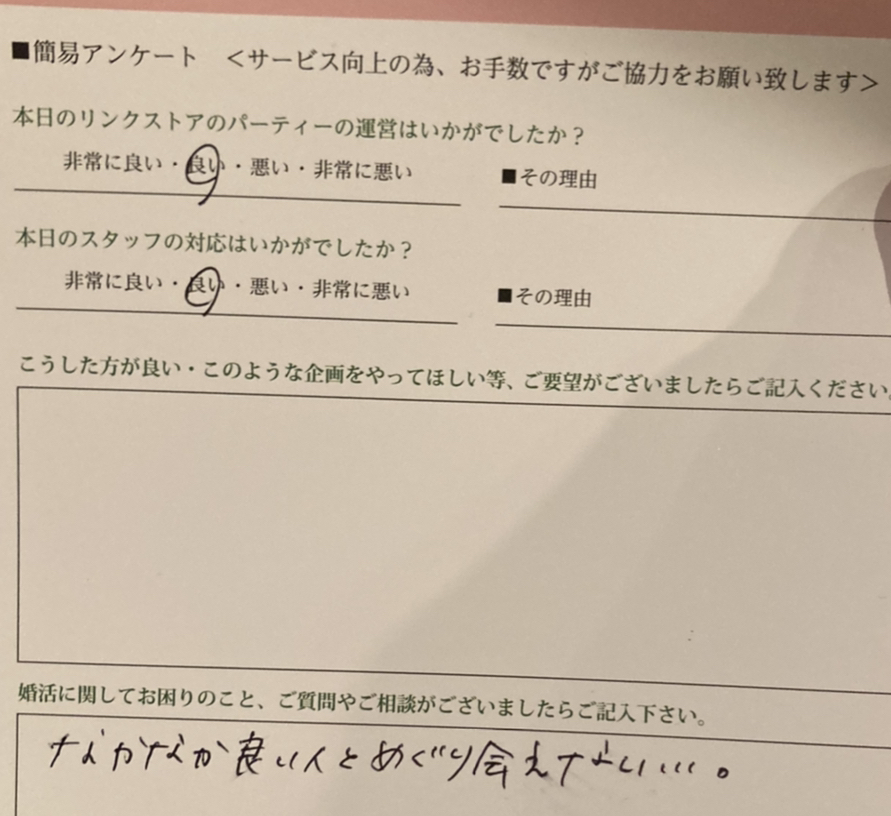 ■簡易アンケート ＜サービス向上の為、お手数ですがご協力をお願い致します＞
本日のリンクストアのパーティーの運営はいかがでしたか？
非常に良い・良い・悪い・非常に悪い ■その理由
本日のスタッフの対応はいかがでしたか？
非常に良い・良い・悪い・非常に悪い ■その理由
こうした方が良い・このような企画をやってほしい等、ご要望がございましたらご記入ください。
婚活に関してお困りのこと、ご質問やご相談がございましたらご記入下さい。
なかなか良い人とめぐり会えない…。